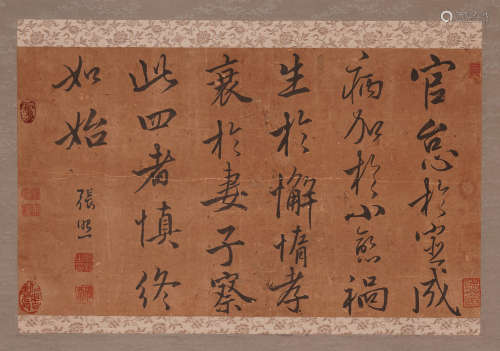 官怠於宦成
病加於小愈禍
生於懈惰孝
衰於妻子察
此四者慎終
如始
張照